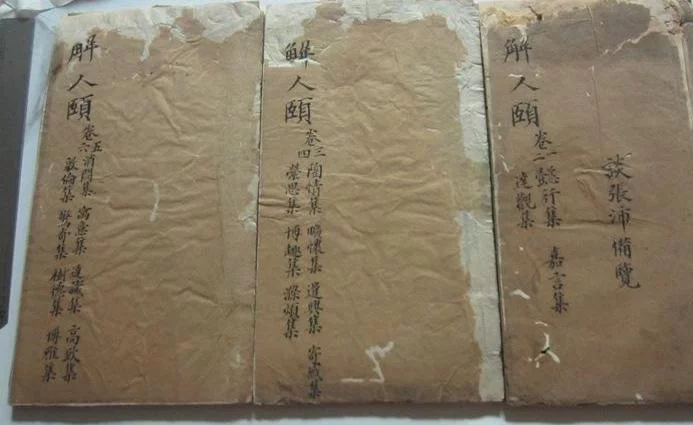 談張沛備覽
解人頤
卷
一 懿行集 嘉言集
二 達觀集
解人頤
卷
三 陶情集 曠懷集 遣興集 寄感集
四 縈思集 博趣集 滌煩集
解人頤
卷
五 消悶集 寓意集 達誡集 高致集
六 敦倫集 驚奇集 樹德集 博雅集